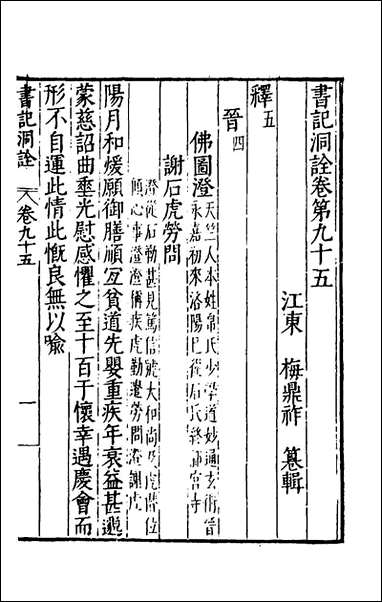 書記洞詮卷第九十五
江東 梅鼎祚 纂輯
釋五
晉四
佛圖澄天竺人本姓帛氏少學道妙通玄術晉
永嘉初來洛陽已從石氏終鄴宮寺
謝石虎勞問
澄從石勒甚見篤信號大和尚及虎僭位
傾心事澄澄稱疾虎勤遣勞問澄謝虎
陽月和煖願御膳順宜貧道先嬰重疾年衰益甚遡
蒙慈詔曲垂光慰感懼之至十百于懷幸遇慶會而
形不自運此情此慨良無以喻
書記洞詮 卷九十五 一